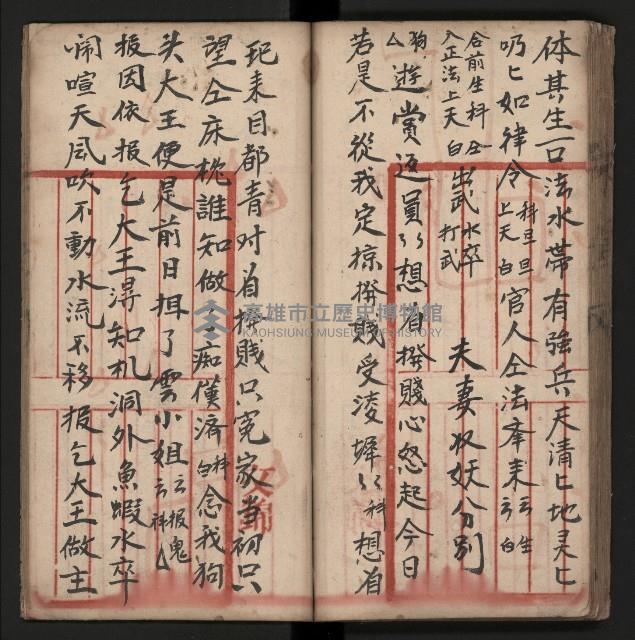 体其生一口法水帶有強兵天清〻地灵〻
吩〻如律令 科旦旦 上天白 官人仝法奉来 云生 云白
合前生科仝 入正法上天白 出武 水卒 打武 夫妻收妖分別
狗 遊賞返員〻想肖 賤心怒起今日
若是不從我定掠 賤受凌墀〻科想肖
玘来目都青对肖 賤只冤家当初只
望仝床枕誰知做痴僕済 科白 念我狗
头大王便是前日揖了雲小姐 云报鬼 云科
报因依报乞大王淂知机洞外魚蝦水卒
闹喧天風吹不動水流不移报乞大王做主
高雄市立歷史博物館
KAOHSIUNG MUSEUM OF HISTORY
錦